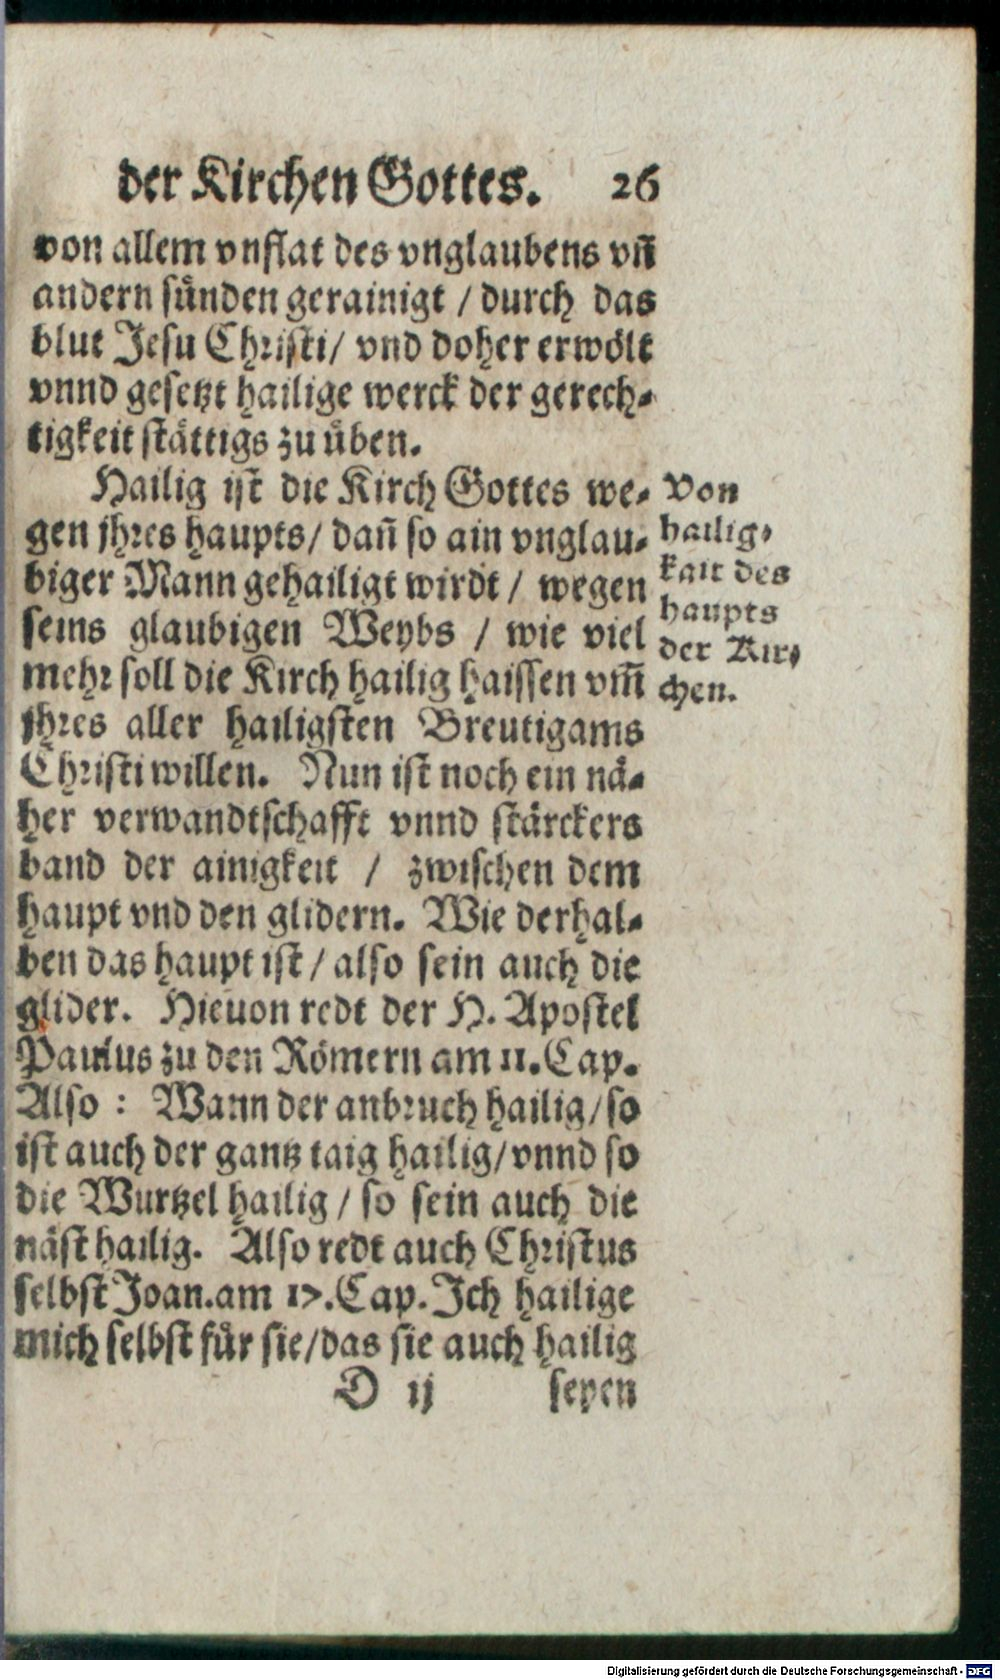 der Kirchen Gottes. 26
von allem vnflat des vnglaubens vñ
andern sünden gerainigt / durch das
blut Jesu Christi / vnd doher erwölt
vnnd gesetzt hailige werck der gerech-
tigkeit stättigs zu üben.
Hailig ist die Kirch Gottes we-
gen jhres haupts / dañ so ain vnglau-
biger Mann gehailigt wirdt / wegen
seins glaubigen Weybs / wie viel
mehr soll die Kirch hailig haissen vm̃
jhres aller hailigsten Breutigams
Christi willen. Nun ist noch ein nä-
her verwandtschafft vnnd stärckers
band der ainigkeit / zwischen dem
haupt vnd den glidern. Wie derhal-
ben das haupt ist / also sein auch die
glider. Hieuon redt der H. Apostel
Paulus zu den Römern am 11. Cap.
Also : Wann der anbruch hailig / so
ist auch der gantz taig hailig / vnnd so
die Wurtzel hailig / so sein auch die
näst hailig. Also redt auch Christus
selbst Joan. am 17. Cap. Ich hailige
mich selbst für sie / das sie auch hailig
D ij seyen
Von
hailig-
kait des
haupts
der Kir-
chen.
Digitalisierung gefördert durch die Deutsche Forschungsgemeinschaft - DFG